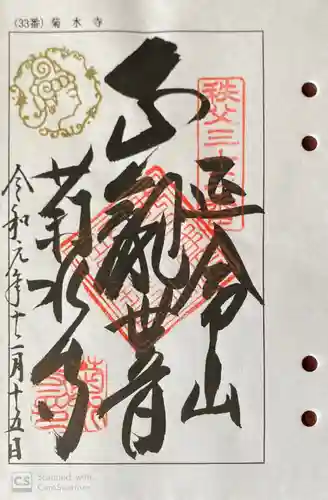 (33番) 菊水寺
秩父三十三番
延命山
觀世音
菊水寺
令和元年十二月十五日
CS Scanned with
CamScanner